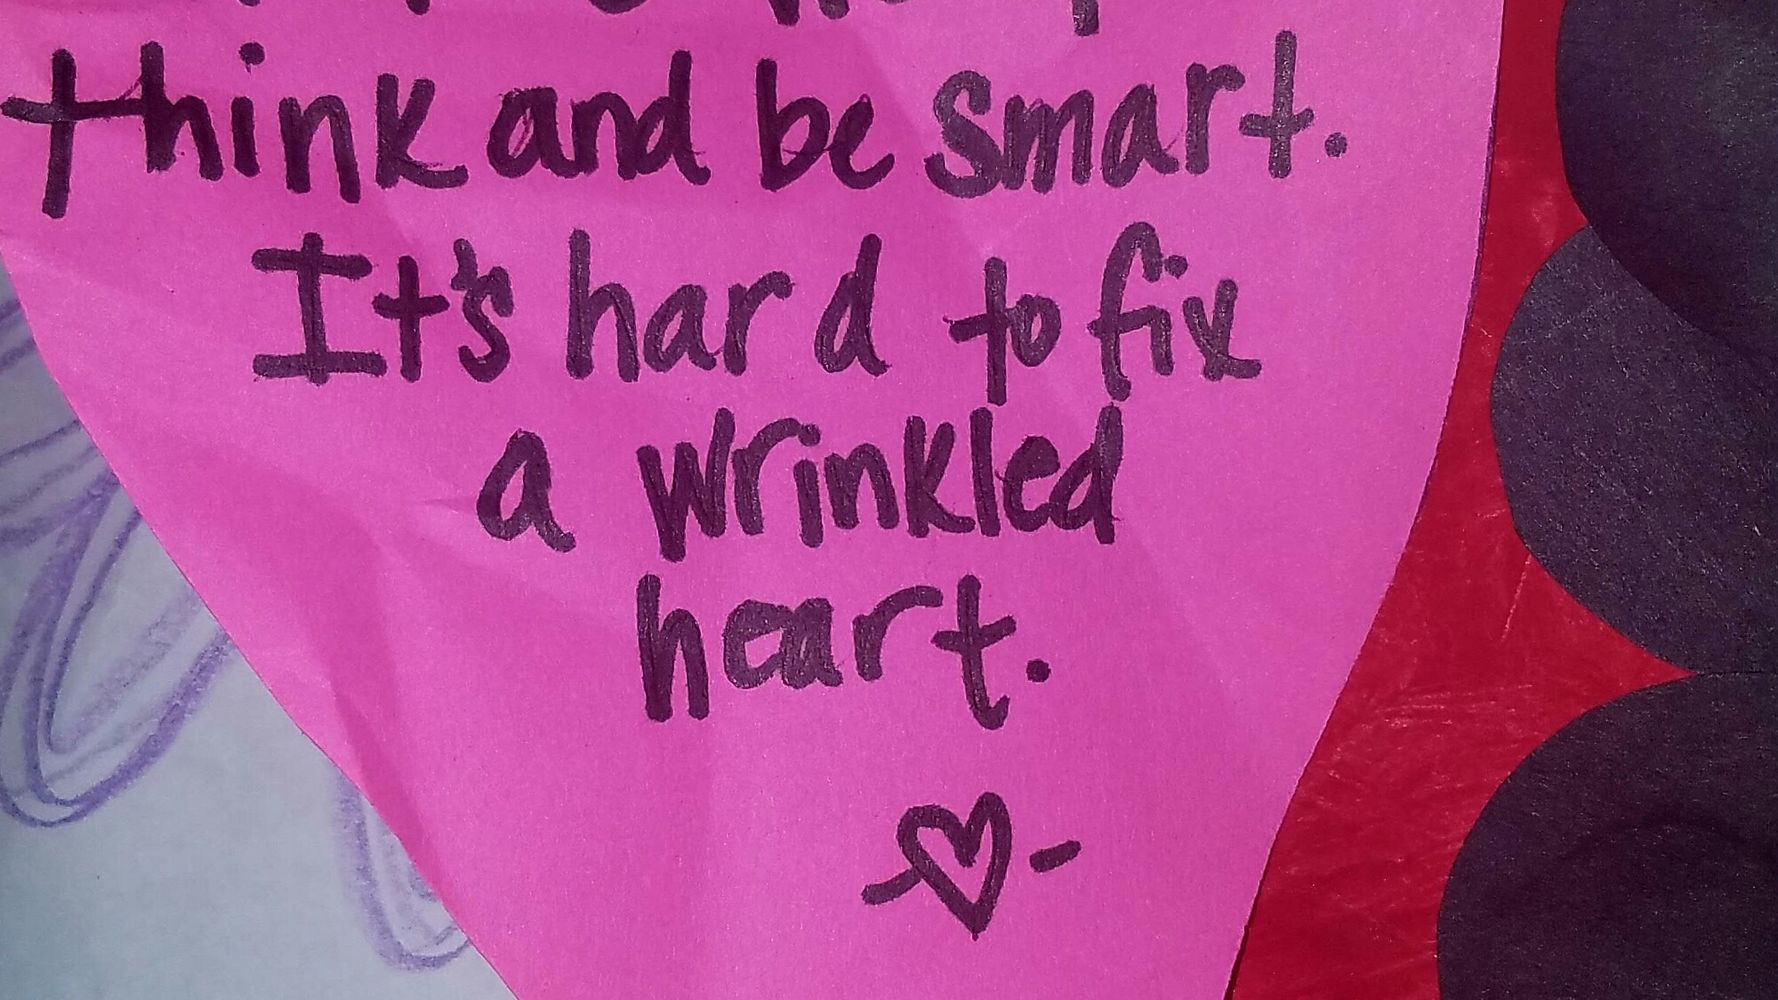 think and be smart.
It's hard to fix
a wrinkled
heart.